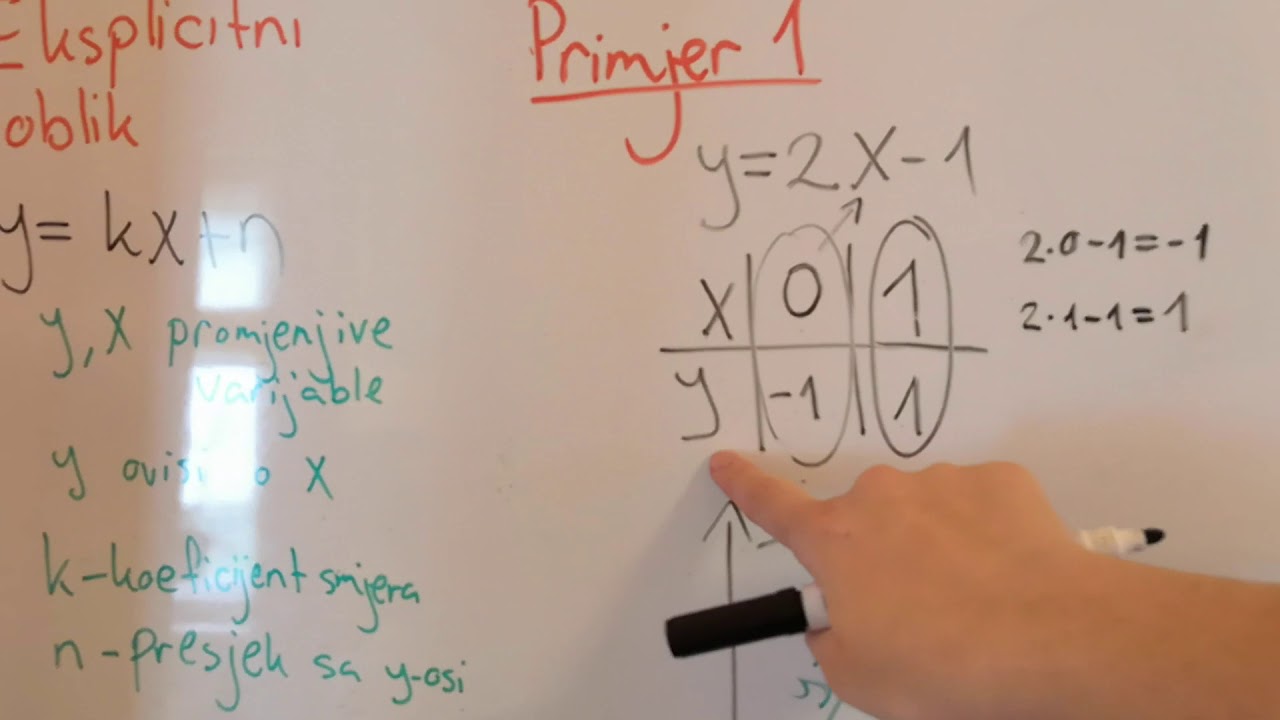 Eksplicitni
oblik
y = kx+n
y, x promjenjive
varijable
y ovisi o x
k-koeficijent smjera
n-presjek sa y-osi
Primjer 1
y=2x-1
x | 0 | 1
y | -1 | 1
2·0-1=-1
2·1-1=1